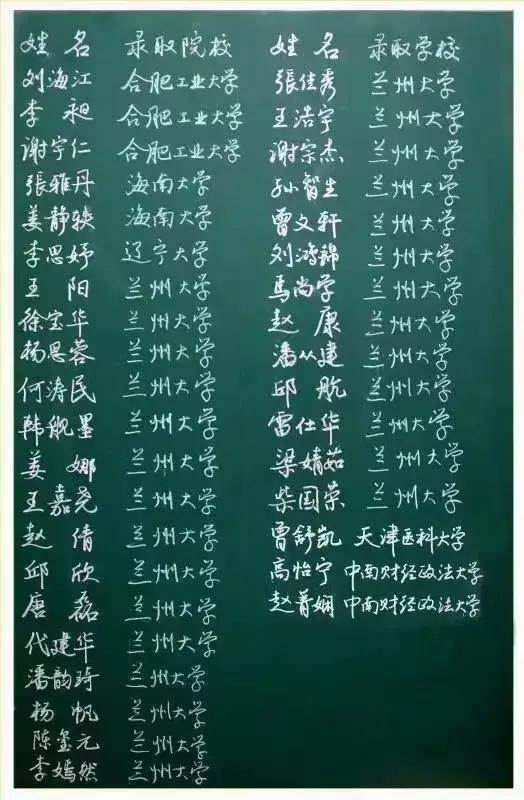 姓 名 录取院校
刘海江 合肥工业大学
李 昶 合肥工业大学
谢宇仁 合肥工业大学
張雅丹 海南大学
姜静轶 海南大学
李思妤 辽宁大学
王 阳 兰州大学
徐宝华 兰州大学
杨思蓉 兰州大学
何涛民 兰州大学
韩舰墨 兰州大学
姜 娜 兰州大学
王嘉尧 兰州大学
赵 倩 兰州大学
邱 欣 兰州大学
唐 磊 兰州大学
代建华 兰州大学
潘韵琦 兰州大学
杨 帆 兰州大学
陈玺元 兰州大学
李嫣然 兰州大学
姓 名 录取学校
張佳秀 兰州大学
王浩宇 兰州大学
謝宗杰 兰州大学
孙智生 兰州大学
曾文轩 兰州大学
刘鸿锦 兰州大学
馬尚学 兰州大学
赵 康 兰州大学
潘从建 兰州大学
邱 航 兰州大学
雷仕华 兰州大学
梁婧茹 兰州大学
柴国荣 兰州大学
曾舒凯 天津医科大学
高怡宁 中南财经政法大学
赵菁娴 中南财经政法大学